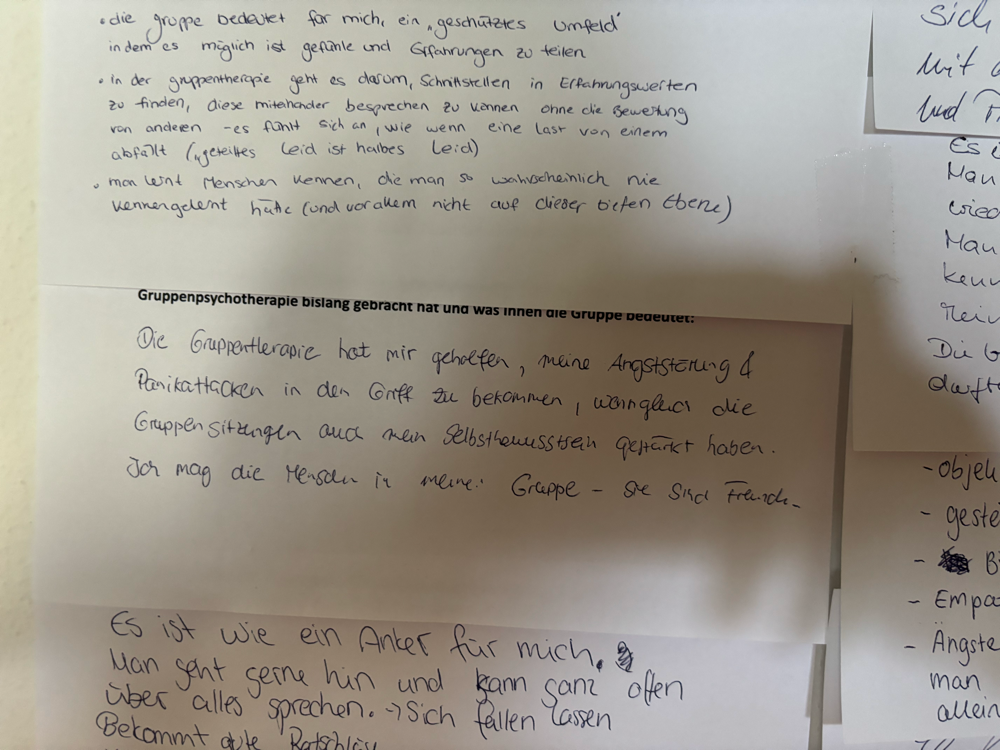 • die gruppe bedeutet für mich, ein „geschütztes Umfeld"
in dem es möglich ist gefühle und Erfahrungen zu teilen
• In der gruppentherapie geht es darum, Schnittstellen in Erfahrungswerten
zu finden, diese miteinander besprechen zu können ohne die Bewertung
von anderen - es fühlt sich an, wie wenn eine last von einem
abfällt („geteiltes Leid ist halbes Leid)
• man lernt Menschen kennen, die man so wahrscheinlich nie
kennengelernt hätte (und vor allem nicht auf dieser tiefen Ebene)
Gruppenpsychotherapie bislang gebracht hat und was Ihnen die Gruppe bedeutet:
Die Gruppentherapie hat mir geholfen, meine Angststörung &
Panikattacken in den Griff zu bekommen, wenngleich die
Gruppensitzungen auch mein Selbstbewusstsein gestärkt haben.
Ich mag die Menschen in meiner Gruppe - sie sind Freunde.
Es ist wie ein Anker für mich.
Man geht gerne hin und kann ganz offen
über alles sprechen. → Sich fallen lassen
Bekommt gute
Sich
Mit
Und
Es
Man
Man
Die
- 
- 
- 
- Empa
- Ängste
man
allein